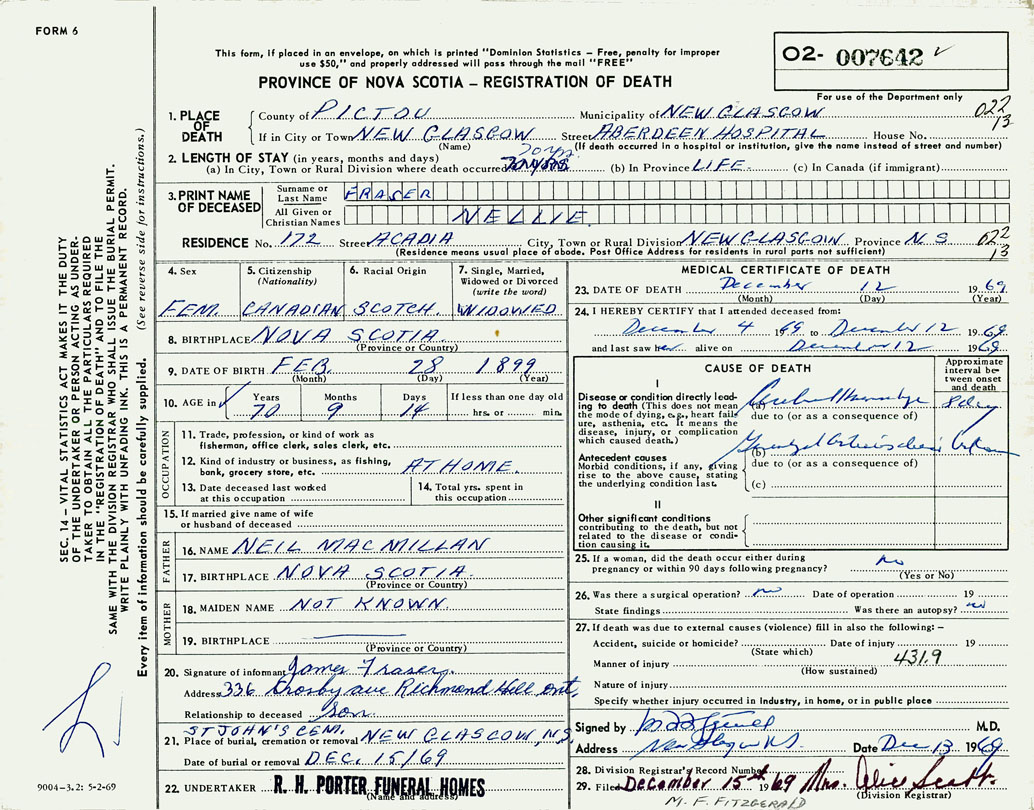 FORM 6
This form, if placed in an envelope, on which is printed "Dominion Statistics – Free, penalty for improper
use $50," and properly addressed will pass through the mail "FREE"
PROVINCE OF NOVA SCOTIA – REGISTRATION OF DEATH
02- 007642 ✓
For use of the Department only
1. PLACE OF DEATH
County of PICTOU Municipality of NEW GLASGOW 022 13
If in City or Town NEW GLASGOW Street ABERDEEN HOSPITAL House No.
(Name) (If death occurred in a hospital or institution, give the name instead of street and number)
2. LENGTH OF STAY (in years, months and days) 70 yrs.
(a) In City, Town or Rural Division where death occurred (b) In Province LIFE. (c) In Canada (if immigrant)
3. PRINT NAME OF DECEASED
Surname or Last Name FRASER
All Given or Christian Names NELLIE
RESIDENCE No. 172 Street ACADIA City, Town or Rural Division NEW GLASGOW Province N.S 022 13
(Residence means usual place of abode. Post Office Address for residents in rural parts not sufficient)
4. Sex FEM.
5. Citizenship (Nationality) CANADIAN
6. Racial Origin SCOTCH.
7. Single, Married, Widowed or Divorced (write the word) WIDOWED
8. BIRTHPLACE NOVA SCOTIA
(Province or Country)
9. DATE OF BIRTH FEB. 28 1899
(Month) (Day) (Year)
10. AGE in Years Months Days If less than one day old
70 9 14 hrs. or min.
OCCUPATION
11. Trade, profession, or kind of work as
fisherman, office clerk, sales clerk, etc.
12. Kind of industry or business, as fishing,
bank, grocery store, etc. AT HOME.
13. Date deceased last worked
at this occupation
14. Total yrs. spent in
this occupation
15. If married give name of wife
or husband of deceased
FATHER
16. NAME NEIL MACMILLAN
17. BIRTHPLACE NOVA SCOTIA.
(Province or Country)
MOTHER
18. MAIDEN NAME NOT KNOWN.
19. BIRTHPLACE
(Province or Country)
20. Signature of informant James Fraser.
Address 336 Crosby ave Richmond Hill ont,
Relationship to deceased Son.
ST JOHN'S CEM.
21. Place of burial, cremation or removal NEW GLASGOW, N.S.
Date of burial or removal DEC. 15/69
22. UNDERTAKER R. H. PORTER FUNERAL HOMES
(Name and address)
MEDICAL CERTIFICATE OF DEATH
23. DATE OF DEATH December 12 1969
(Month) (Day) (Year)
24. I HEREBY CERTIFY that I attended deceased from:
December 4 1969 to December 12 1969
and last saw her alive on December 12 1969
CAUSE OF DEATH
Approximate interval between onset and death
I
Disease or condition directly leading to death (This does not mean
the mode of dying, e.g., heart failure, asthenia, etc. It means the
disease, injury, or complication
which caused death.)
(a) 8 day
due to (or as a consequence of)
Antecedent causes
Morbid conditions, if any, giving
rise to the above cause, stating
the underlying condition last.
(b)
due to (or as a consequence of)
(c)
II
Other significant conditions
contributing to the death, but not
related to the disease or condition causing it.
25. If a woman, did the death occur either during
pregnancy or within 90 days following pregnancy? no
(Yes or No)
26. Was there a surgical operation? no Date of operation 19
State findings Was there an autopsy? no
27. If death was due to external causes (violence) fill in also the following: –
Accident, suicide or homicide? Date of injury 19
(State which)
Manner of injury 431.9
(How sustained)
Nature of injury
Specify whether injury occurred in industry, in home, or in public place
Signed by M.D.
Address New Glasgow N.S. Date Dec 13 1969
28. Division Registrar's Record Number
29. Filed December 15th 1969 Mrs. Alice Scott.
(Division Registrar)
M. F. FITZGERALD
SEC. 14 – VITAL STATISTICS ACT MAKES IT THE DUTY
OF THE UNDERTAKER OR PERSON ACTING AS UNDERTAKER TO OBTAIN ALL THE PARTICULARS REQUIRED
IN THE "REGISTRATION OF DEATH" AND TO FILE THE
SAME WITH THE DIVISION REGISTRAR WHO SHALL ISSUE THE BURIAL PERMIT.
WRITE PLAINLY WITH UNFADING INK. THIS IS A PERMANENT RECORD.
Every item of information should be carefully supplied. (See reverse side for instructions.)
9004-3.2: 5-2-69